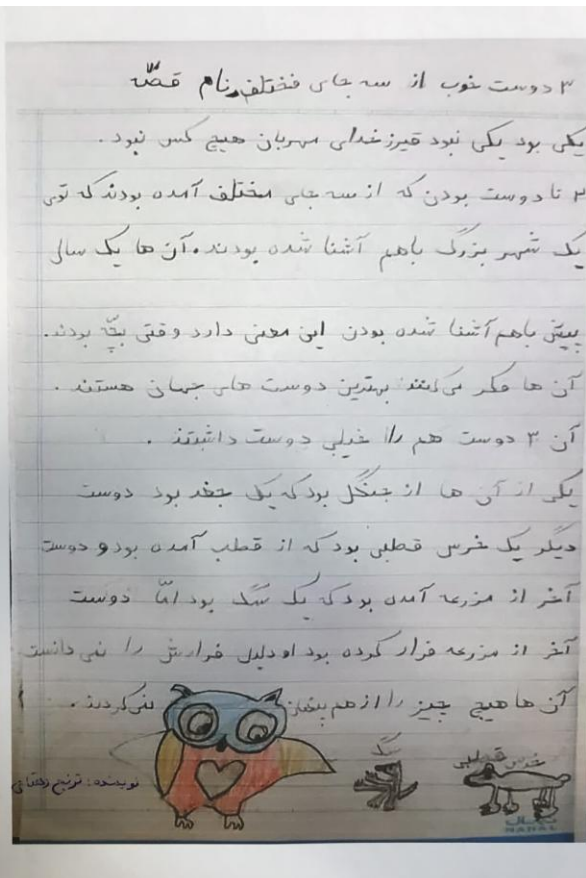 ۳ دوست خوب از سه جای مختلف نام قصّه
یکی بود یکی نبود غیرز خدای مهربان هیچ کس نبود.
۳ تا دوست بودن که از سه جای مختلف آمده بودند که توی
یک شهر بزرگ باهم آشنا شده بودند. آن ها یک سالی
پیش باهم آشنا شده بودن این معنی دارد وقتی بچّه بودند.
آن ها فکر می‌کنند بهترین دوست های جهان هستند.
آن ۳ دوست هم را خیلی دوست داشتند.
یکی از آن ها از جنگل بود که یک جغد بود دوست
دیگر یک خرس قطبی بود که از قطب آمده بود و دوست
آخر از مزرعه آمده بود که یک سگ بود امّا دوست
آخر از مزرعه فرار کرده بود او دلیل فرارش را نمی دانست
آن ها هیچ چیز را از هم پنهان نمی‌کردند.
سگ
خرس قطبی
نویسنده: ترنج
نهال
NAHAL